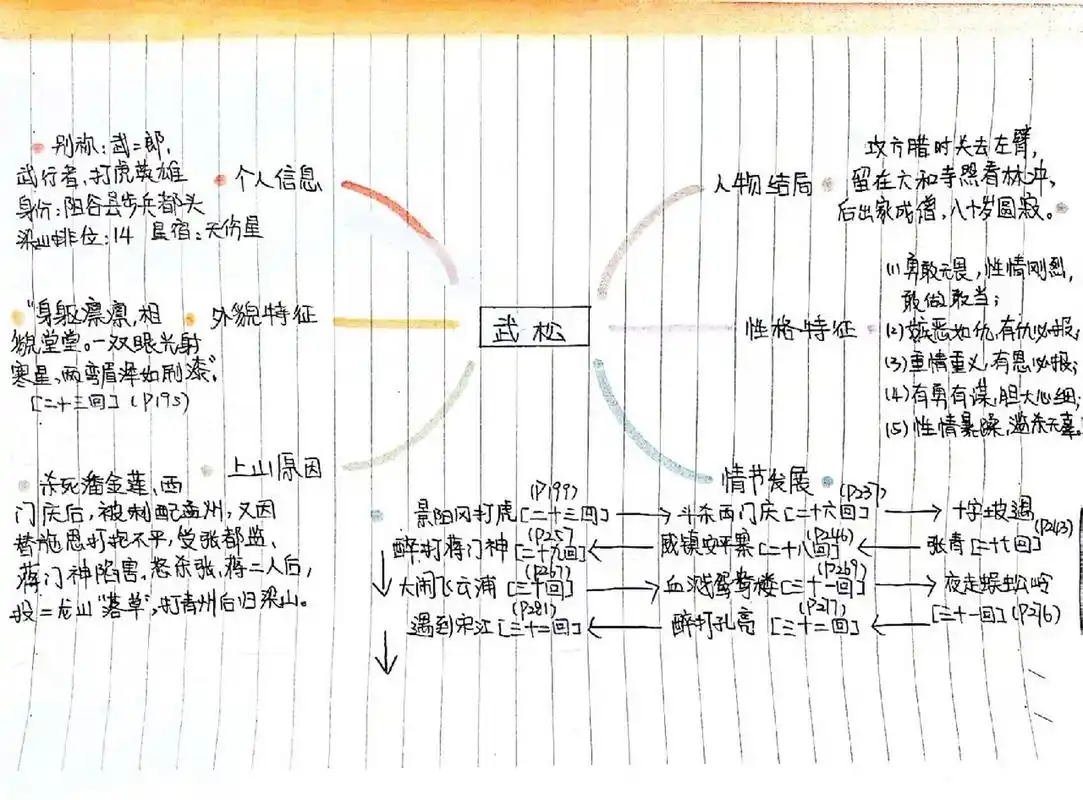 武松
个人信息
别称：武二郎，
武行者、打虎英雄
身份：阳谷县步兵都头
梁山排位：14 星宿：天伤星
外貌特征
"身躯凛凛，相
貌堂堂。一双眼光射
寒星，两弯眉浑如刷漆"。
[二十三回] (P195)
上山原因
杀死潘金莲、西
门庆后，被刺配孟州，又因
替施恩打抱不平，受张都监、
蒋门神陷害，怒杀张，蒋二人后，
投二龙山"落草"，打青州后归梁山。
人物结局
攻方腊时失去左臂，
留在六和寺照看林冲，
后出家成僧，八十岁圆寂。
性格特征
(1)勇敢无畏，性情刚烈，
敢做敢当；
(2)嫉恶如仇，有仇必报；
(3)重情重义，有恩必报；
(4)有勇有谋，胆大心细；
(5)性情暴躁，滥杀无辜。
情节发展
(P199) (P237)
景阳冈打虎[二十三回] → 斗杀西门庆[二十六回] → 十字坡遇
(P257) (P246) (P243)
醉打蒋门神[二十九回] ← 威镇安平寨[二十八回] ← 张青[二十七回]
(P267) (P269)
大闹飞云浦[三十回] → 血溅鸳鸯楼[三十一回] → 夜走蜈蚣岭
(P281) (P277) [三十一回](P276)
遇到宋江[三十二回] ← 醉打孔亮[三十二回] ←